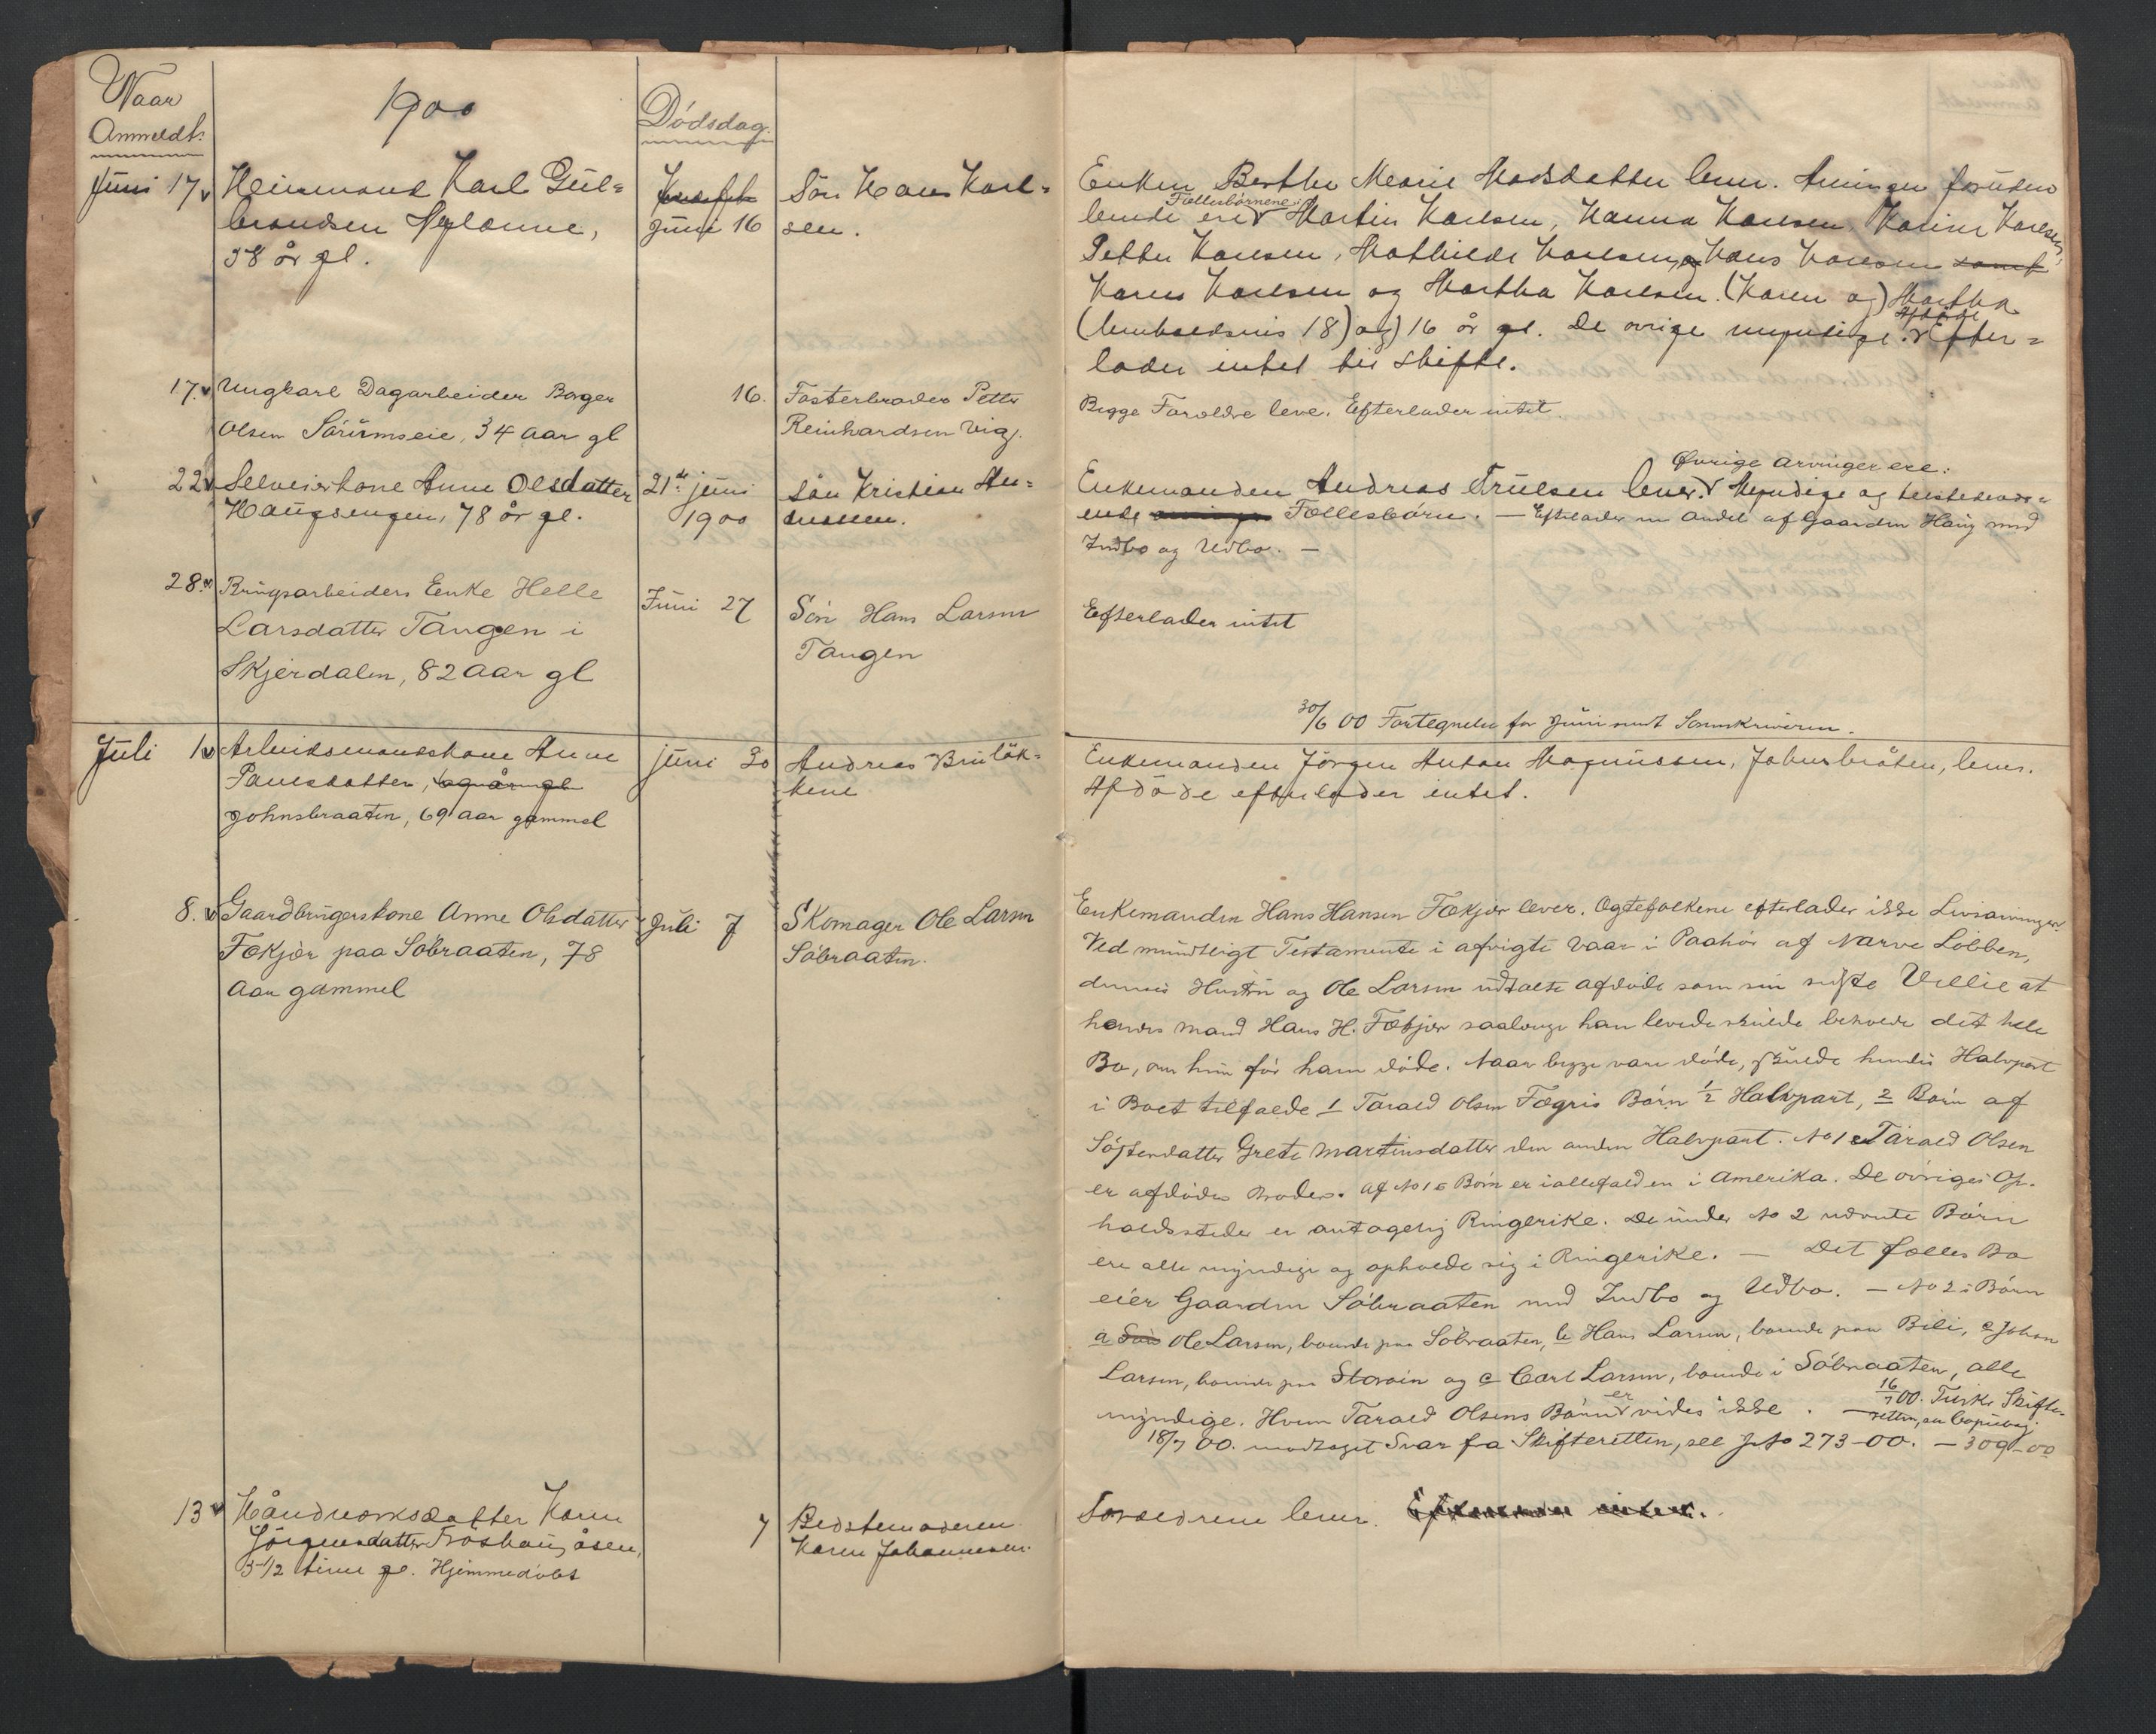 Naar
Anmeldt.
1900
Dödsdag.
Juni 17 Heiemand Karl Gul=
brandsen
58 år gl.
Juni 16
Sön Hans Karl=
sen.
Enken Berthe Marie Madsdatter lever. Arvinger foruden
Fællesbörnene
lende ere Martin Karlsen, Hanna Karlsen, Karine Karlsen,
Petter Karlsen, Mathilde Karlsen, og Hans Karlsen samt
Karen Karlsen og Martha Karlsen. (Karen og) Martha
Afdöde
(henholdsvis 18) og) 16 år gl. De övrige myndige. Efter=
lader intet til skifte.
17. Ungkarl Dagarbeider Borger
Olsen Sörumseie, 34 aar gl
16.
Fosterbroder Petter
Reinhardsen Vig.
Begge Foreldre leve. Efterlader intet.
22 Selveierkone Anne Olsdatter
Haugsengen, 78 år gl.
21de juni
1900
Sön Kristian An=
dresen.
Övrige arvinger ere:
Enkemanden Andreas Trulsen lever. Myndige og tilstedevær=
ende Fællesbörn. — Efterlader en Andel af Gaarden Haug med
Indbo og Udbo. —
28. Brugsarbeiders Enke Helle
Larsdatter Tangen i
Skjerdalen, 82 aar gl
Juni 27
Sön Hans Larsen
Tangen
Efterlader intet
30/6 00 Fortegnelse for Juni sendt Sorenskriveren.
Juli 1 Arbeidsmandskone Anne
Paulsdatter,
Johnsbraaten, 69 aar gammel
juni 30
Andreas Bruløk=
kene
Enkemanden Jörgen Anton Magnussen, Johnsbråten, lever.
Afdöde efterlader intet.
8. Gaardbrugerskone Anne Olsdatter
Fækjær paa Söbraaten, 78
Aar gammel
Juli 7
Skomager Ole Larsen
Söbraaten.
Enkemanden Hans Hansen Fækjær lever. Ægtefolkene efterlader ikke Livsarvinger
Ved mundtligt Testamente i afvigte Vaar i Paahör af Narve Löbben,
dennes Hustru og Ole Larsen udtalte afdöde som sin sidste Villie at
hendes mand Hans H. Fækjær saalænge han levede skulde beholde det hele
Bo, om hun för ham döde. Naar begge vare döde, skulde hendes Halvpart
i Boet tilfalde 1 Tarald Olsen Fægris Börn 1/2 Halvpart, 2 Börn af
Söster datter Grete Martinsdatter den anden Halvpart. No 1 Tarald Olsen
er afdödes Broder. Af No 1s Börn er iallefald en i Amerika. De övriges Op-
holdssteder er antagelig Ringerike. De under No 2 nævnte Börn
ere alle myndige og opholde sig i Ringerike. — Det fælles Bo
eier Gaarden Söbraaten med Indbo og Udbo. — No 2s Börn
a Ole Larsen, boende paa Söbraaten, b Hans Larsen, boende paa Bili, c Johan
Larsen, boende paa Storøin og c Carl Larsen, boende i Söbraaten, alle
myndige. Hvem Tarald Olsens Börn er vides ikke. — 16/7 00. Tilskr. Skifte-
retten, se Copiebog.
18/7 00. modtaget Svar fra Skifteretten, see J. No 273-00. — 309-00
13 Håndverksdatter Karen
Jörgensdatter Fröshaugåsen,
5 1/2 time gl. Hjemmedöbt
7
Bedstemoderen
Karen Johannesen.
Forældrene lever.